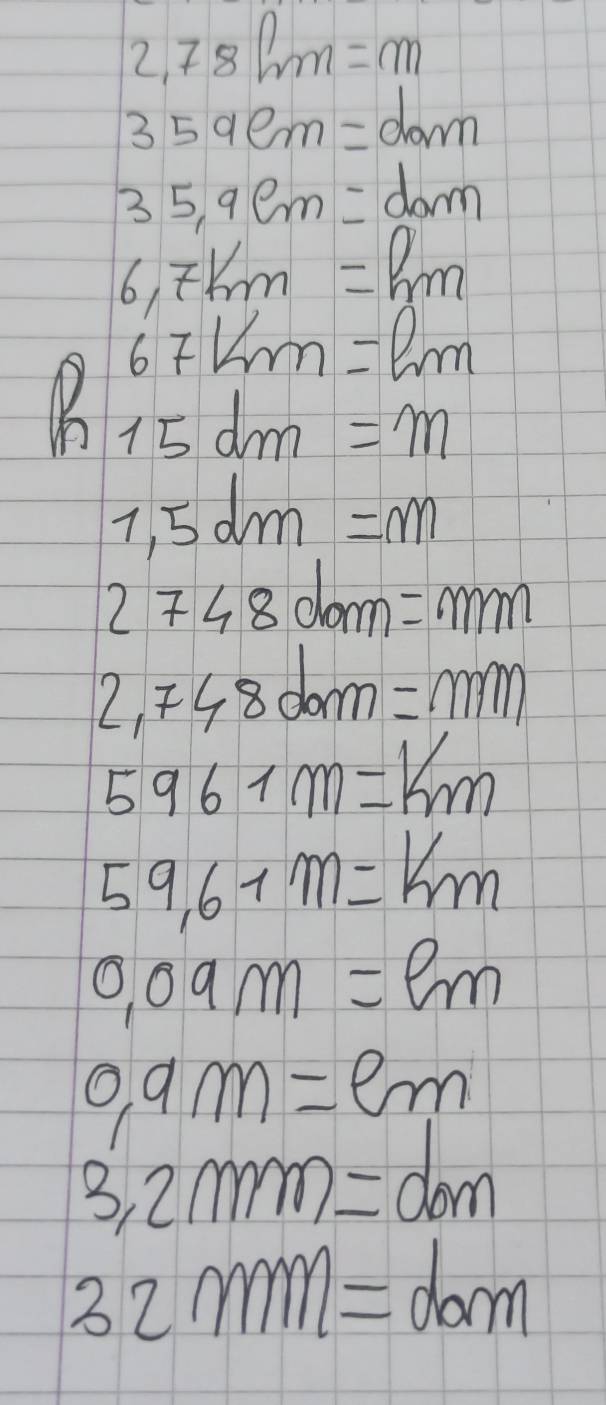 2,78 hm = m
359 cm = dam
35,9 cm = dam
6,7 Km = hm
67 Km = hm
h 15 dm = m
1,5 dm = m
2748 dam = mm
2,748 dam = mm
5961 m = Km
59,61 m = Km
0,09 m = cm
0,9 m = cm
3,2 mm = dam
32 mm = dam